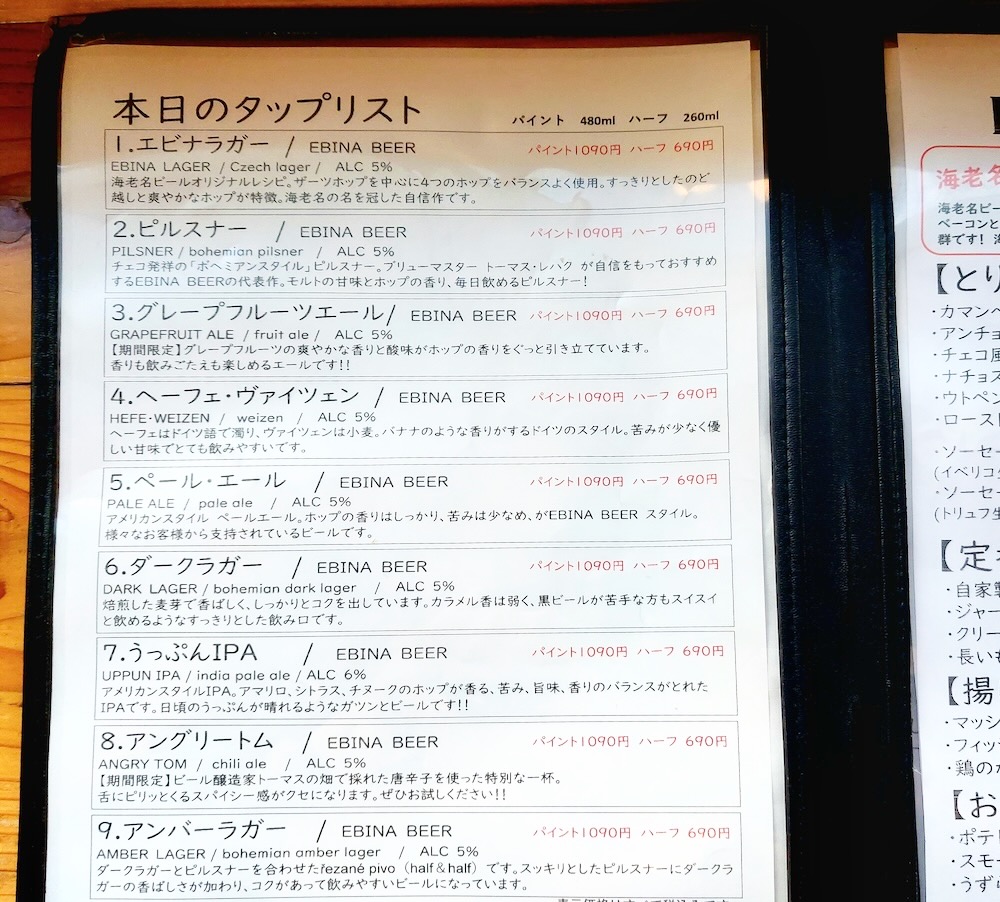 本日のタップリスト
パイント 480ml ハーフ 260ml
1.エビナラガー / EBINA BEER パイント1090円 ハーフ 690円
EBINA LAGER / Czech lager / ALC 5%
海老名ビールオリジナルレシピ。ザーツホップを中心に4つのホップをバランスよく使用。すっきりとしたのど
越しと爽やかなホップが特徴。海老名の名を冠した自信作です。
2.ピルスナー / EBINA BEER パイント1090円 ハーフ 690円
PILSNER / bohemian pilsner / ALC 5%
チェコ発祥の「ボヘミアンスタイル」ピルスナー。ブリューマスター トーマス・レハク が自信をもっておすすめ
するEBINA BEERの代表作。モルトの甘味とホップの香り、毎日飲めるピルスナー!
3.グレープフルーツエール/ EBINA BEER パイント1090円 ハーフ 690円
GRAPEFRUIT ALE / fruit ale / ALC 5%
【期間限定】グレープフルーツの爽やかな香りと酸味がホップの香りをぐっと引き立てています。
香りも飲みごたえも楽しめるエールです!!
4.ヘーフェ・ヴァイツェン / EBINA BEER パイント1090円 ハーフ 690円
HEFE-WEIZEN / weizen / ALC 5%
ヘーフェはドイツ語で濁り、ヴァイツェンは小麦。バナナのような香りがするドイツのスタイル。苦みが少なく優
しい甘味でとても飲みやすいです。
5.ペール・エール / EBINA BEER パイント1090円 ハーフ 690円
PALE ALE / pale ale / ALC 5%
アメリカンスタイル ペールエール。ホップの香りはしっかり、苦みは少なめ、がEBINA BEER スタイル。
様々なお客様から支持されているビールです。
6.ダークラガー / EBINA BEER パイント1090円 ハーフ 690円
DARK LAGER / bohemian dark lager / ALC 5%
焙煎した麦芽で香ばしく、しっかりとコクを出しています。カラメル香は弱く、黒ビールが苦手な方もスイスイ
と飲めるようなすっきりとした飲み口です。
7.うっぷんIPA / EBINA BEER パイント1090円 ハーフ 690円
UPPUN IPA / india pale ale / ALC 6%
アメリカンスタイルIPA。アマリロ、シトラス、チヌークのホップが香る、苦み、旨味、香りのバランスがとれた
IPAです。日頃のうっぷんが晴れるようなガツンとビールです!!
8.アングリートム / EBINA BEER パイント1090円 ハーフ 690円
ANGRY TOM / chili ale / ALC 5%
【期間限定】ビール醸造家トーマスの畑で採れた唐辛子を使った特別な一杯。
舌にピリッとくるスパイシー感がクセになります。ぜひお試しください!!
9.アンバーラガー / EBINA BEER パイント1090円 ハーフ 690円
AMBER LAGER / bohemian amber lager / ALC 5%
ダークラガーとピルスナーを合わせたřezané pivo（half&half）です。スッキリとしたピルスナーにダークラ
ガーの香ばしさが加わり、コクがあって飲みやすいビールになっています。
海老名
海老名ビー
ベーコンと
群です! 海
【とり
・カマンベ
・アンチョ
・チェコ風
・ナチョス
・ウトペン
・ロースト
・ソーセー
(イベリコ
・ソーセー
(トリュフ生
【定
・自家製
・ジャー
・クリー
・長いも
【揚
・マッシ
・フィッ
・鶏の
【お
・ポテト
・スモー
・うずら